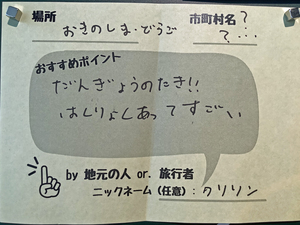 場所 市町村名
おきのしま・どうご ?
?...
おすすめポイント
だんぎょうのたき!!
はくりょくあってすごい
by 地元の人 or. 旅行者
ニックネーム(任意):クリリン